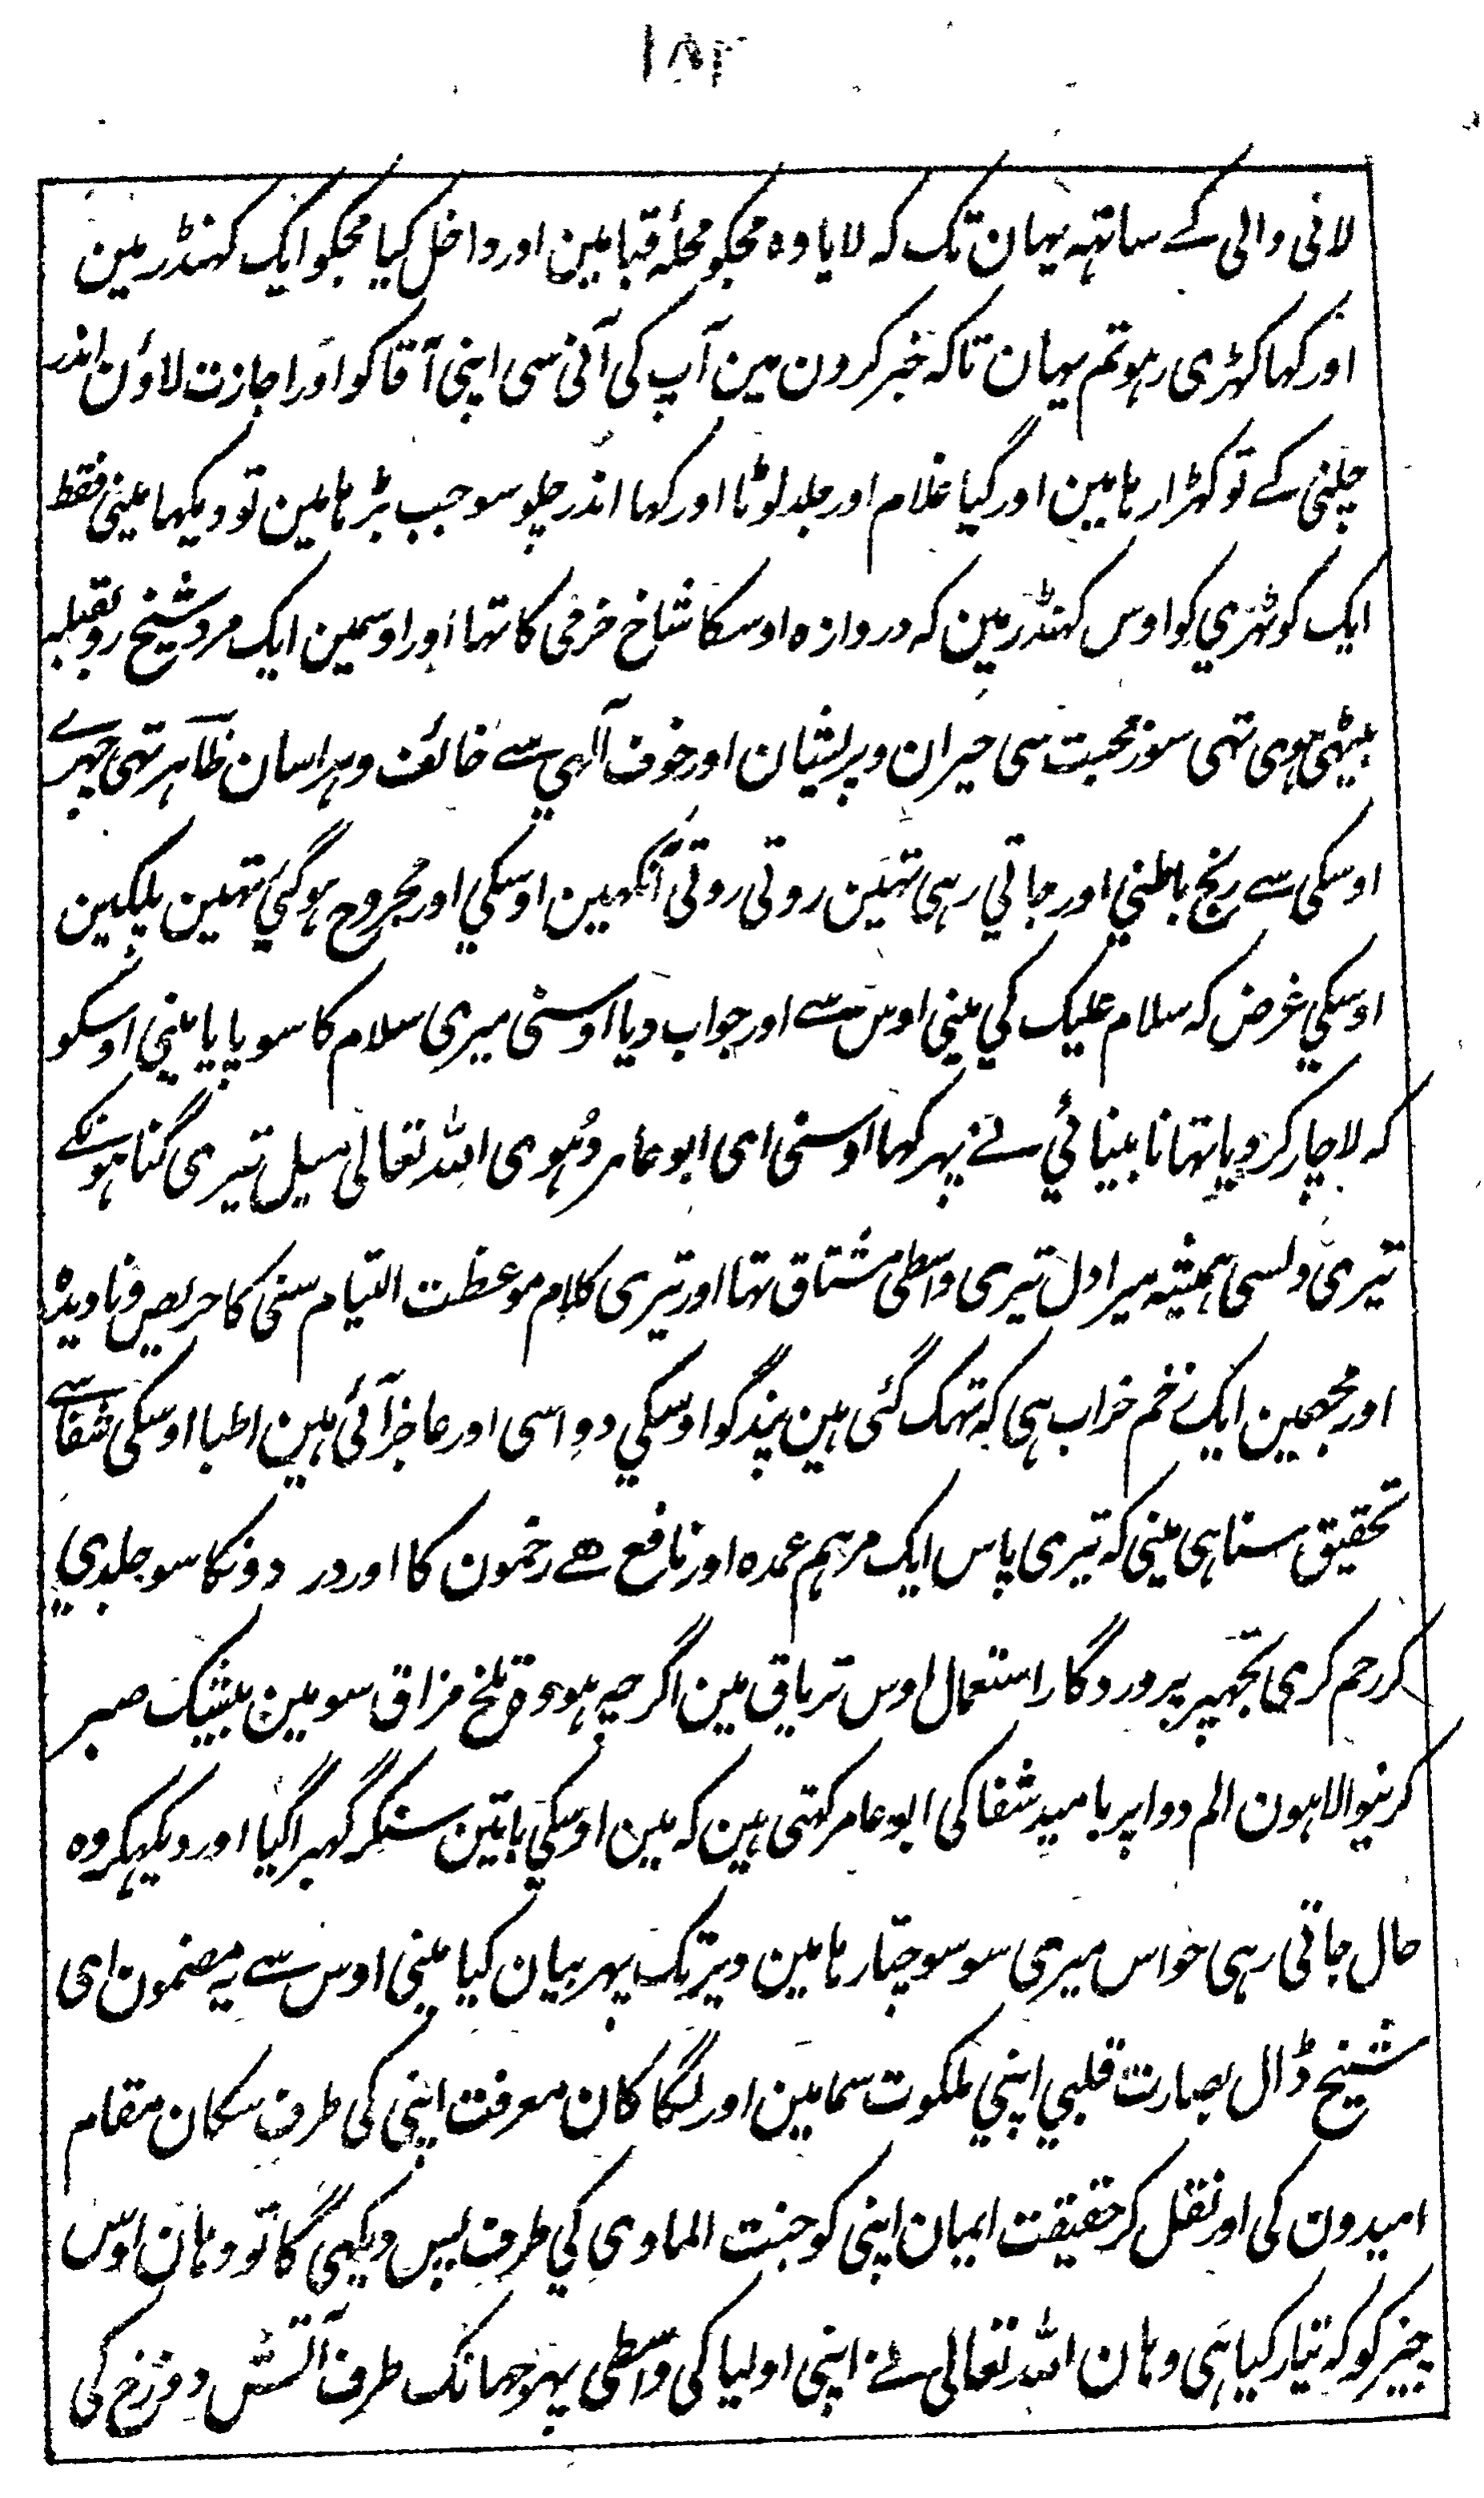 ۱۸۲
لانی والی کے ساتہہ یہان تک کہ لایا وہ مجکو محلۂ قبا مین اور داخل کیا مجکو ایک کہنڈر مین
اور کہا کہڑی رہو تم یہان تاکہ خبر کردون مین آپ کی آنی سی اپنی آقا کو اور اجازت لاؤن اندر
چلنی کے تو کہڑا رہا مین اور گیا غلام اور جلد لوٹا اور کہا اندر چلو سو جب بڑہا مین تو دیکہا مینی فقط
ایک کوٹہڑي کو اوس کہنڈر مین کہ دروازہ اوسکا شاخ خرمی کا تہا اور اوسمین ایک مرد شیخ رو بقبلہ
بیٹہی ہوی تہی سوز محبت سی حیران و پریشان اور خوف آلہي سے خائف و ہراسان ظاہر تہی چہرے
اوسکی سے رنج باطنی اور جاتي رہی تہین روتی روتی آنکہین اوسکي اور مجروح ہوگئي تہین پلکین
اوسکي غرض کہ سلام علیک کي مینی اوس سے اور جواب دیا اوسنی میری سلام کا سو پایا مینی اوسکو
کہ لاچار کردیا تہا نابینائي نے پہر کہا اوسنی ای ابو عامر دُہووی اللہ تعالی میل تیری گناہونکے
تیری دلسی ہمیشہ میرا دل تیری واسطی مشتاق تہا اور تیری کلام موعظت التیام سننی کا حریص و نادیدہ
اور مجہین ایک زخم خراب ہی کہ تہک گئی ہین پندگو اوسکي دوا سی اور عاجز آئی ہین اطبا اوسکی شفا سے
تحقیق سنا ہی مینی کہ تیری پاس ایک مرہم عمدہ اور نافع ھے زخمون کا اور دردونکا سو جلدي
کر رحم کری تجہپر پروردگار استعمال اوس تریاق مین اگرچہ ہووی تلخ مزاق سو مین بیشک صبر
کرنیوالا ہون الم دوا پر بامید شفا کی ابو عامر کہتی ہین کہ مین اوسکي باتین سنکر گہبرا گیا اور دیکہکر وہ
حال جاتی رہی حواس میری سو سوچتا رہا مین دیر تک پہر بیان کیا مینی اوس سے یہ مضمون ای
شیخ ڈال بصارت قلبي اپني ملکوت سما مین اور لگا کان معرفت اپنی کی طرف سکان مقام
امیدون کی اور نقل کر حقیقت ایمان اپنی کو جنت الماوی کي طرف پس دیکہي گا تو وہان اوس
چیز کو کہ تیار کیا ہی وہان اللہ تعالی نے اپنی اولیا کی واسطی پہر جہانک طرف آتش دوزخ کی